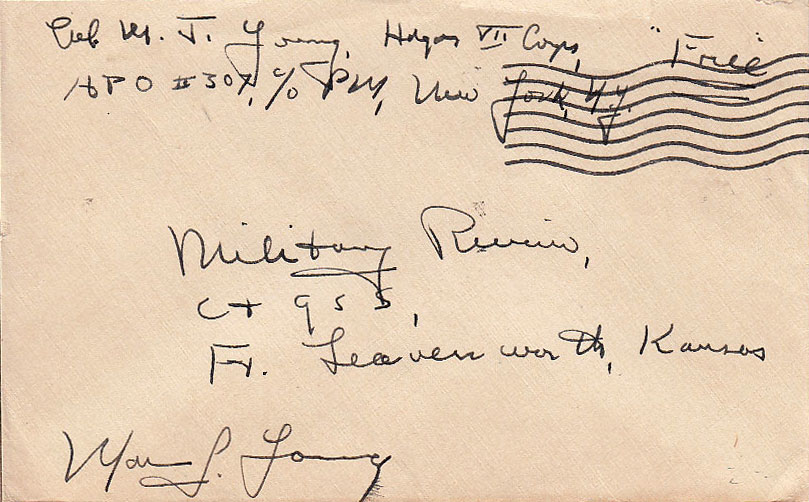 Col. M. J. Young, Hdqrs VII Corps, "Free"
APO #307, c/o PM, New York, N.Y.
Military Review,
C + GSS,
Ft. Leavenworth, Kansas
Young